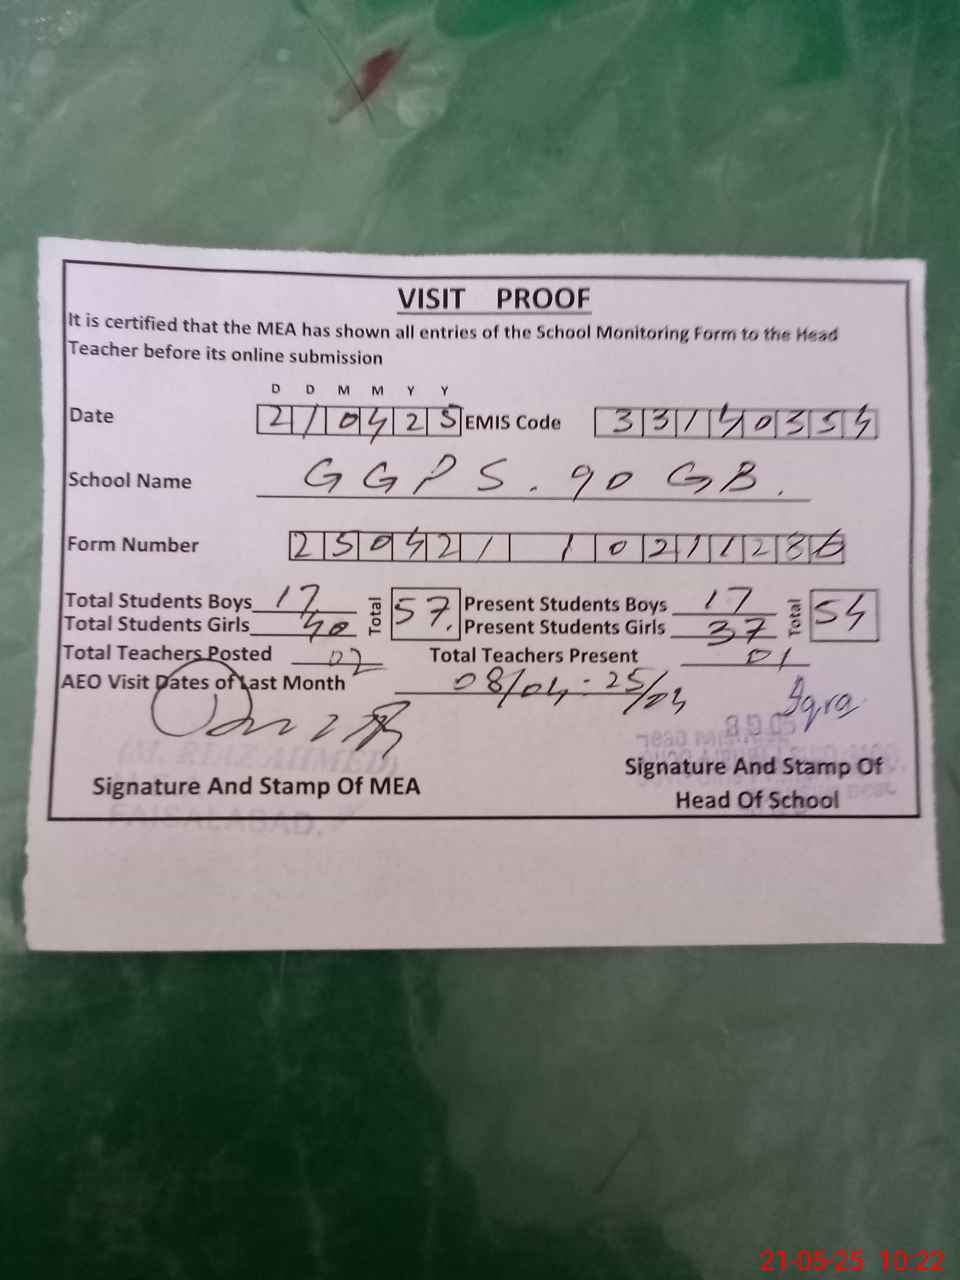 VISIT PROOF
It is certified that the MEA has shown all entries of the School Monitoring Form to the Head
Teacher before its online submission
D D M M Y Y
Date 210425 EMIS Code 33140354
School Name GGPS. 90 GB.
Form Number 250421 10211286
Total Students Boys 17 Total 57. Present Students Boys 17 Total 54
Total Students Girls 40 Present Students Girls 37
Total Teachers Posted 02 Total Teachers Present 01
AEO Visit Dates of Last Month 08/04 - 25/04
Iqra
(M. RIAZ AHMED)
Signature And Stamp Of MEA
Signature And Stamp Of
Head Of School
FAISALABAD.
21-05-25 10:22